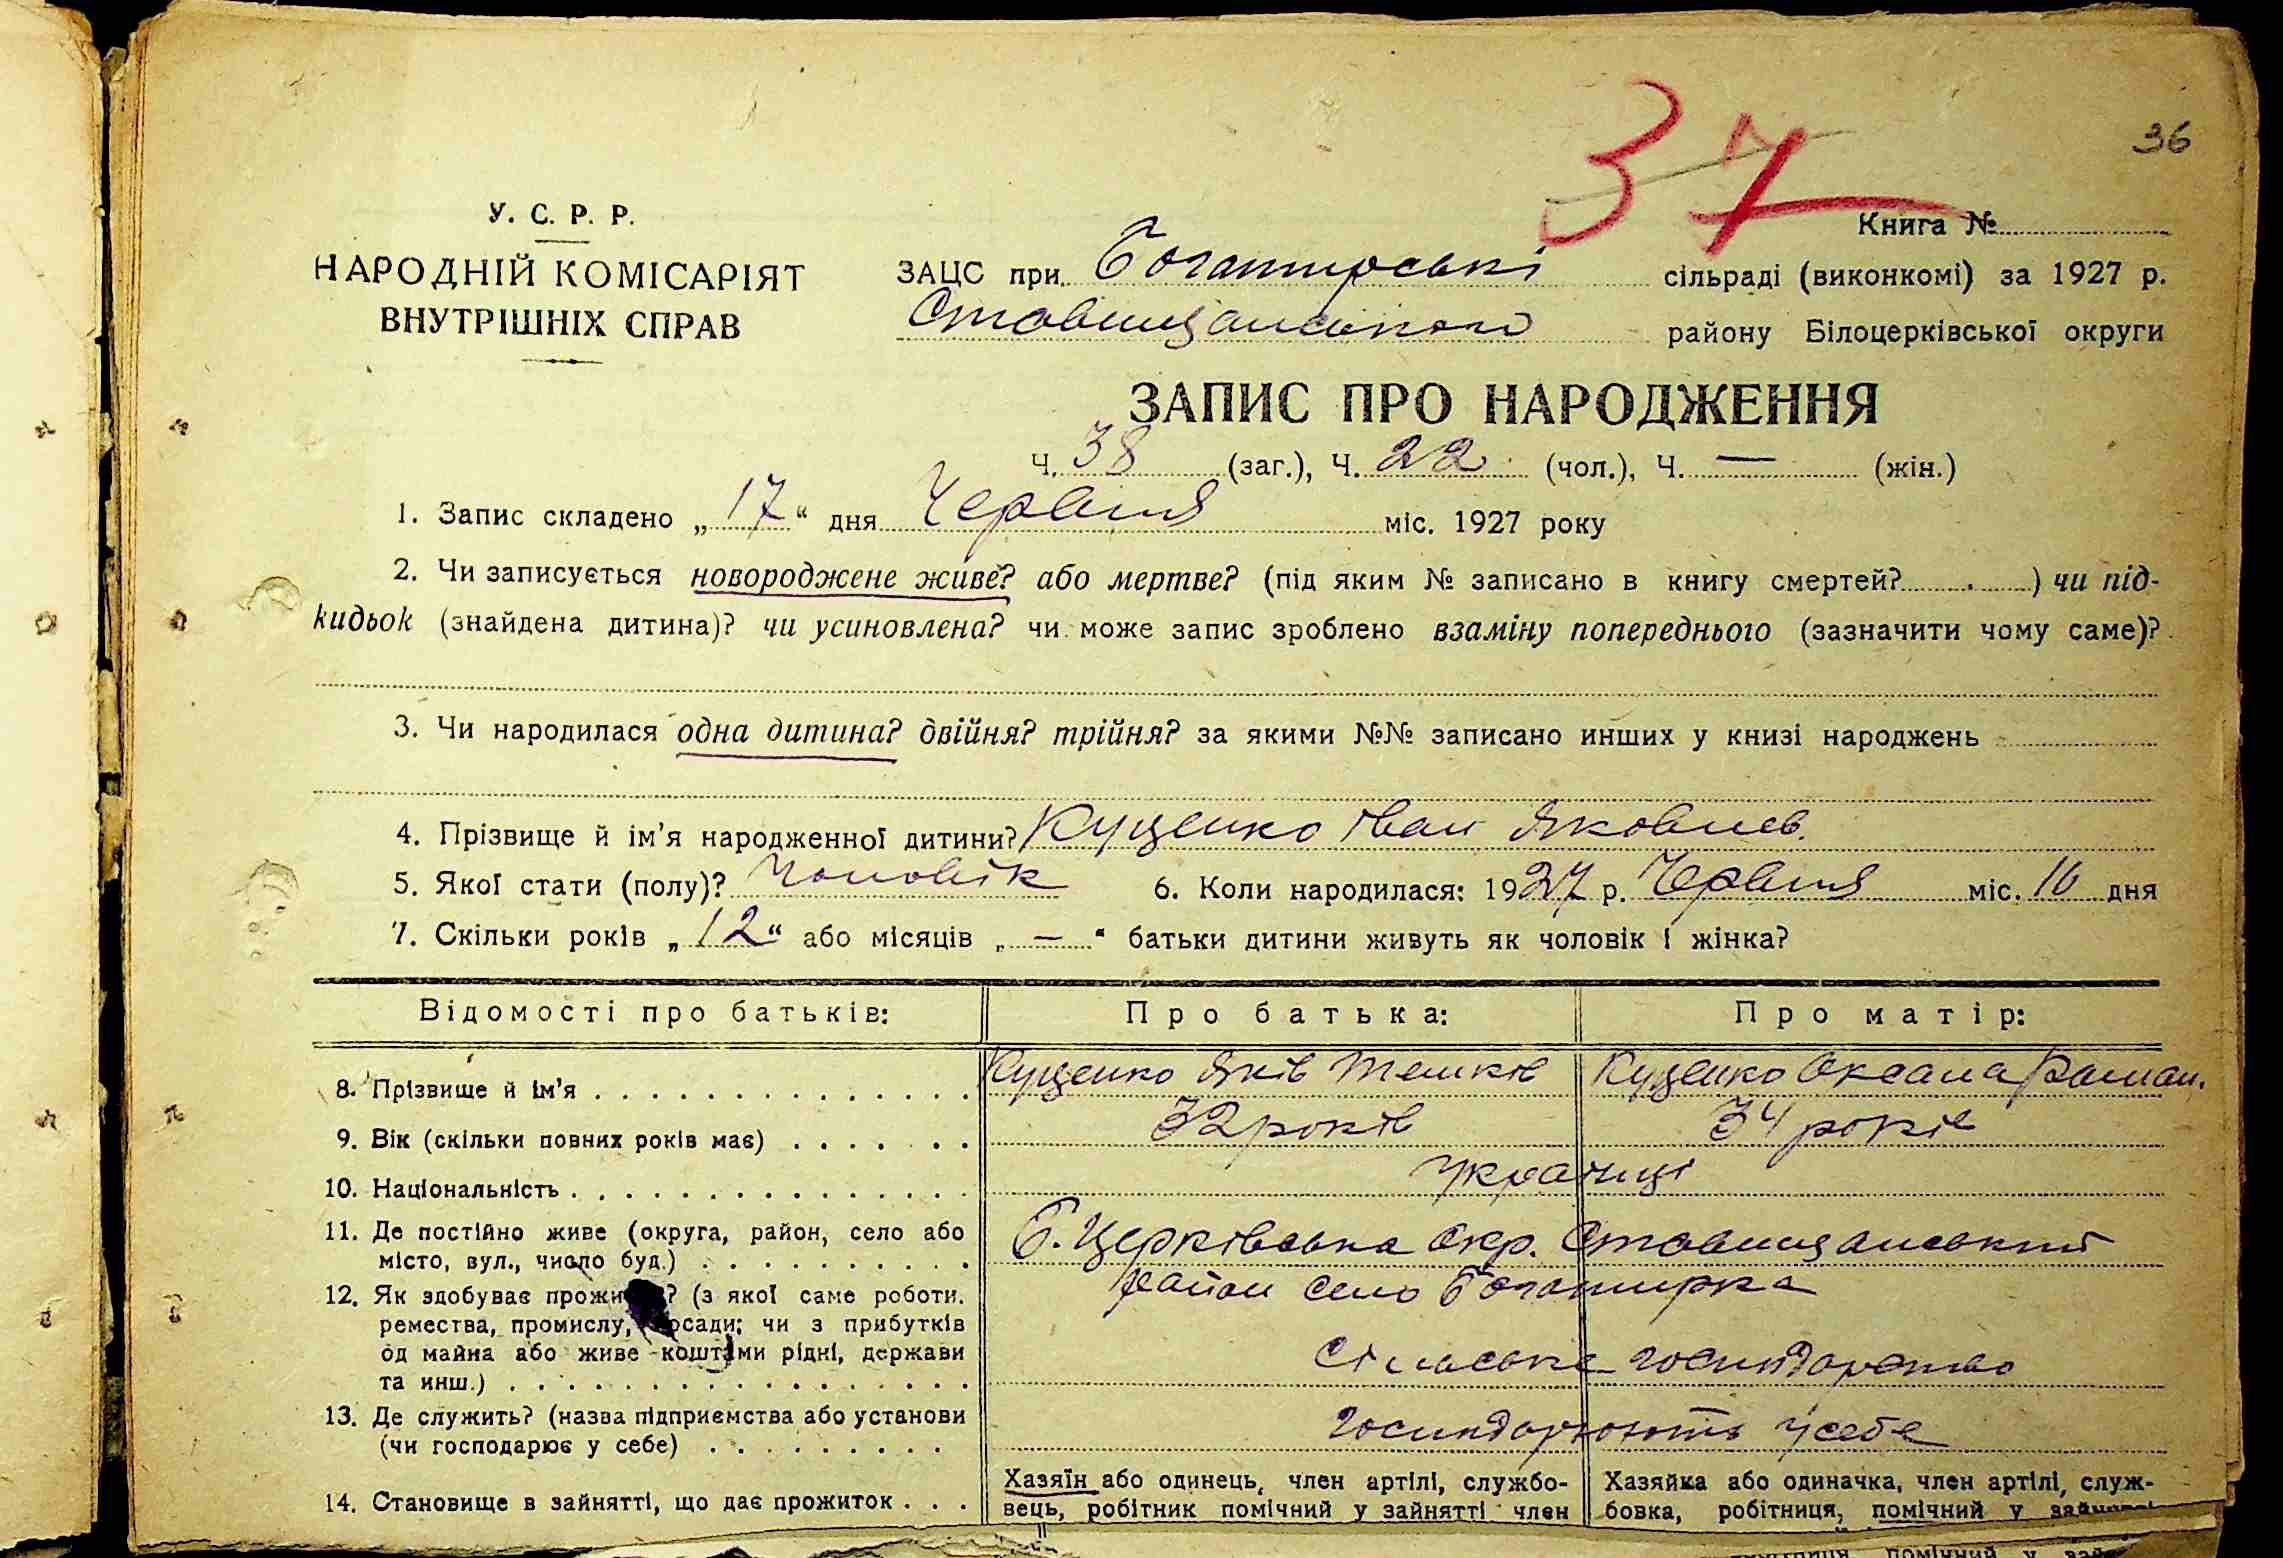 37
36
У. С. Р. Р.
НАРОДНІЙ КОМІСАРІЯТ
ВНУТРІШНІХ СПРАВ
Книга №
ЗАЦС при Богатирські сільраді (виконкомі) за 1927 р.
Ставищанського району Білоцерківської округи
ЗАПИС ПРО НАРОДЖЕННЯ
Ч. 38 (заг.), Ч. 22 (чол.), Ч. — (жін.)
1. Запис складено „17“ дня Червня міс. 1927 року
2. Чи записується новороджене живе? або мертве? (під яким № записано в книгу смертей? ) чи під-
кидьок (знайдена дитина)? чи усиновлена? чи може запис зроблено взаміну попереднього (зазначити чому саме)?
3. Чи народилася одна дитина? двійня? трійня? за якими №№ записано инших у книзі народжень
4. Прізвище й ім'я народженної дитини? Куценко Іван Яковлев.
5. Якої стати (полу)? Чоловік 6. Коли народилася: 1927 р. Червня міс. 16 дня
7. Скільки років „12“ або місяців „—“ батьки дитини живуть як чоловік і жінка?
Відомості про батьків: Про батька: Про матір:
8. Прізвище й ім'я Куценко Яків Куценко Оксана Роман.
9. Вік (скільки повних років має) 32 років 34 років
10. Національність Українці
11. Де постійно живе (округа, район, село або
місто, вул., число буд.)
Б. Церківська Окр. Ставищанський
район село Богатирка
12. Як здобуває (з якої саме роботи.
ремества, промислу, посади; чи з прибутків
од майна або живе коштами рідні, держави
та инш.)
Сільське господарство
13. Де служить? (назва підприємства або установи
(чи господарює у себе)
господарюють у себе
14. Становище в зайнятті, що дає прожиток
Хазяїн або одинець, член артілі, службо-
вець, робітник помічний у зайнятті член
Хазяйка або одиначка, член артілі, служ-
бовка, робітниця, помічний у зайнятті